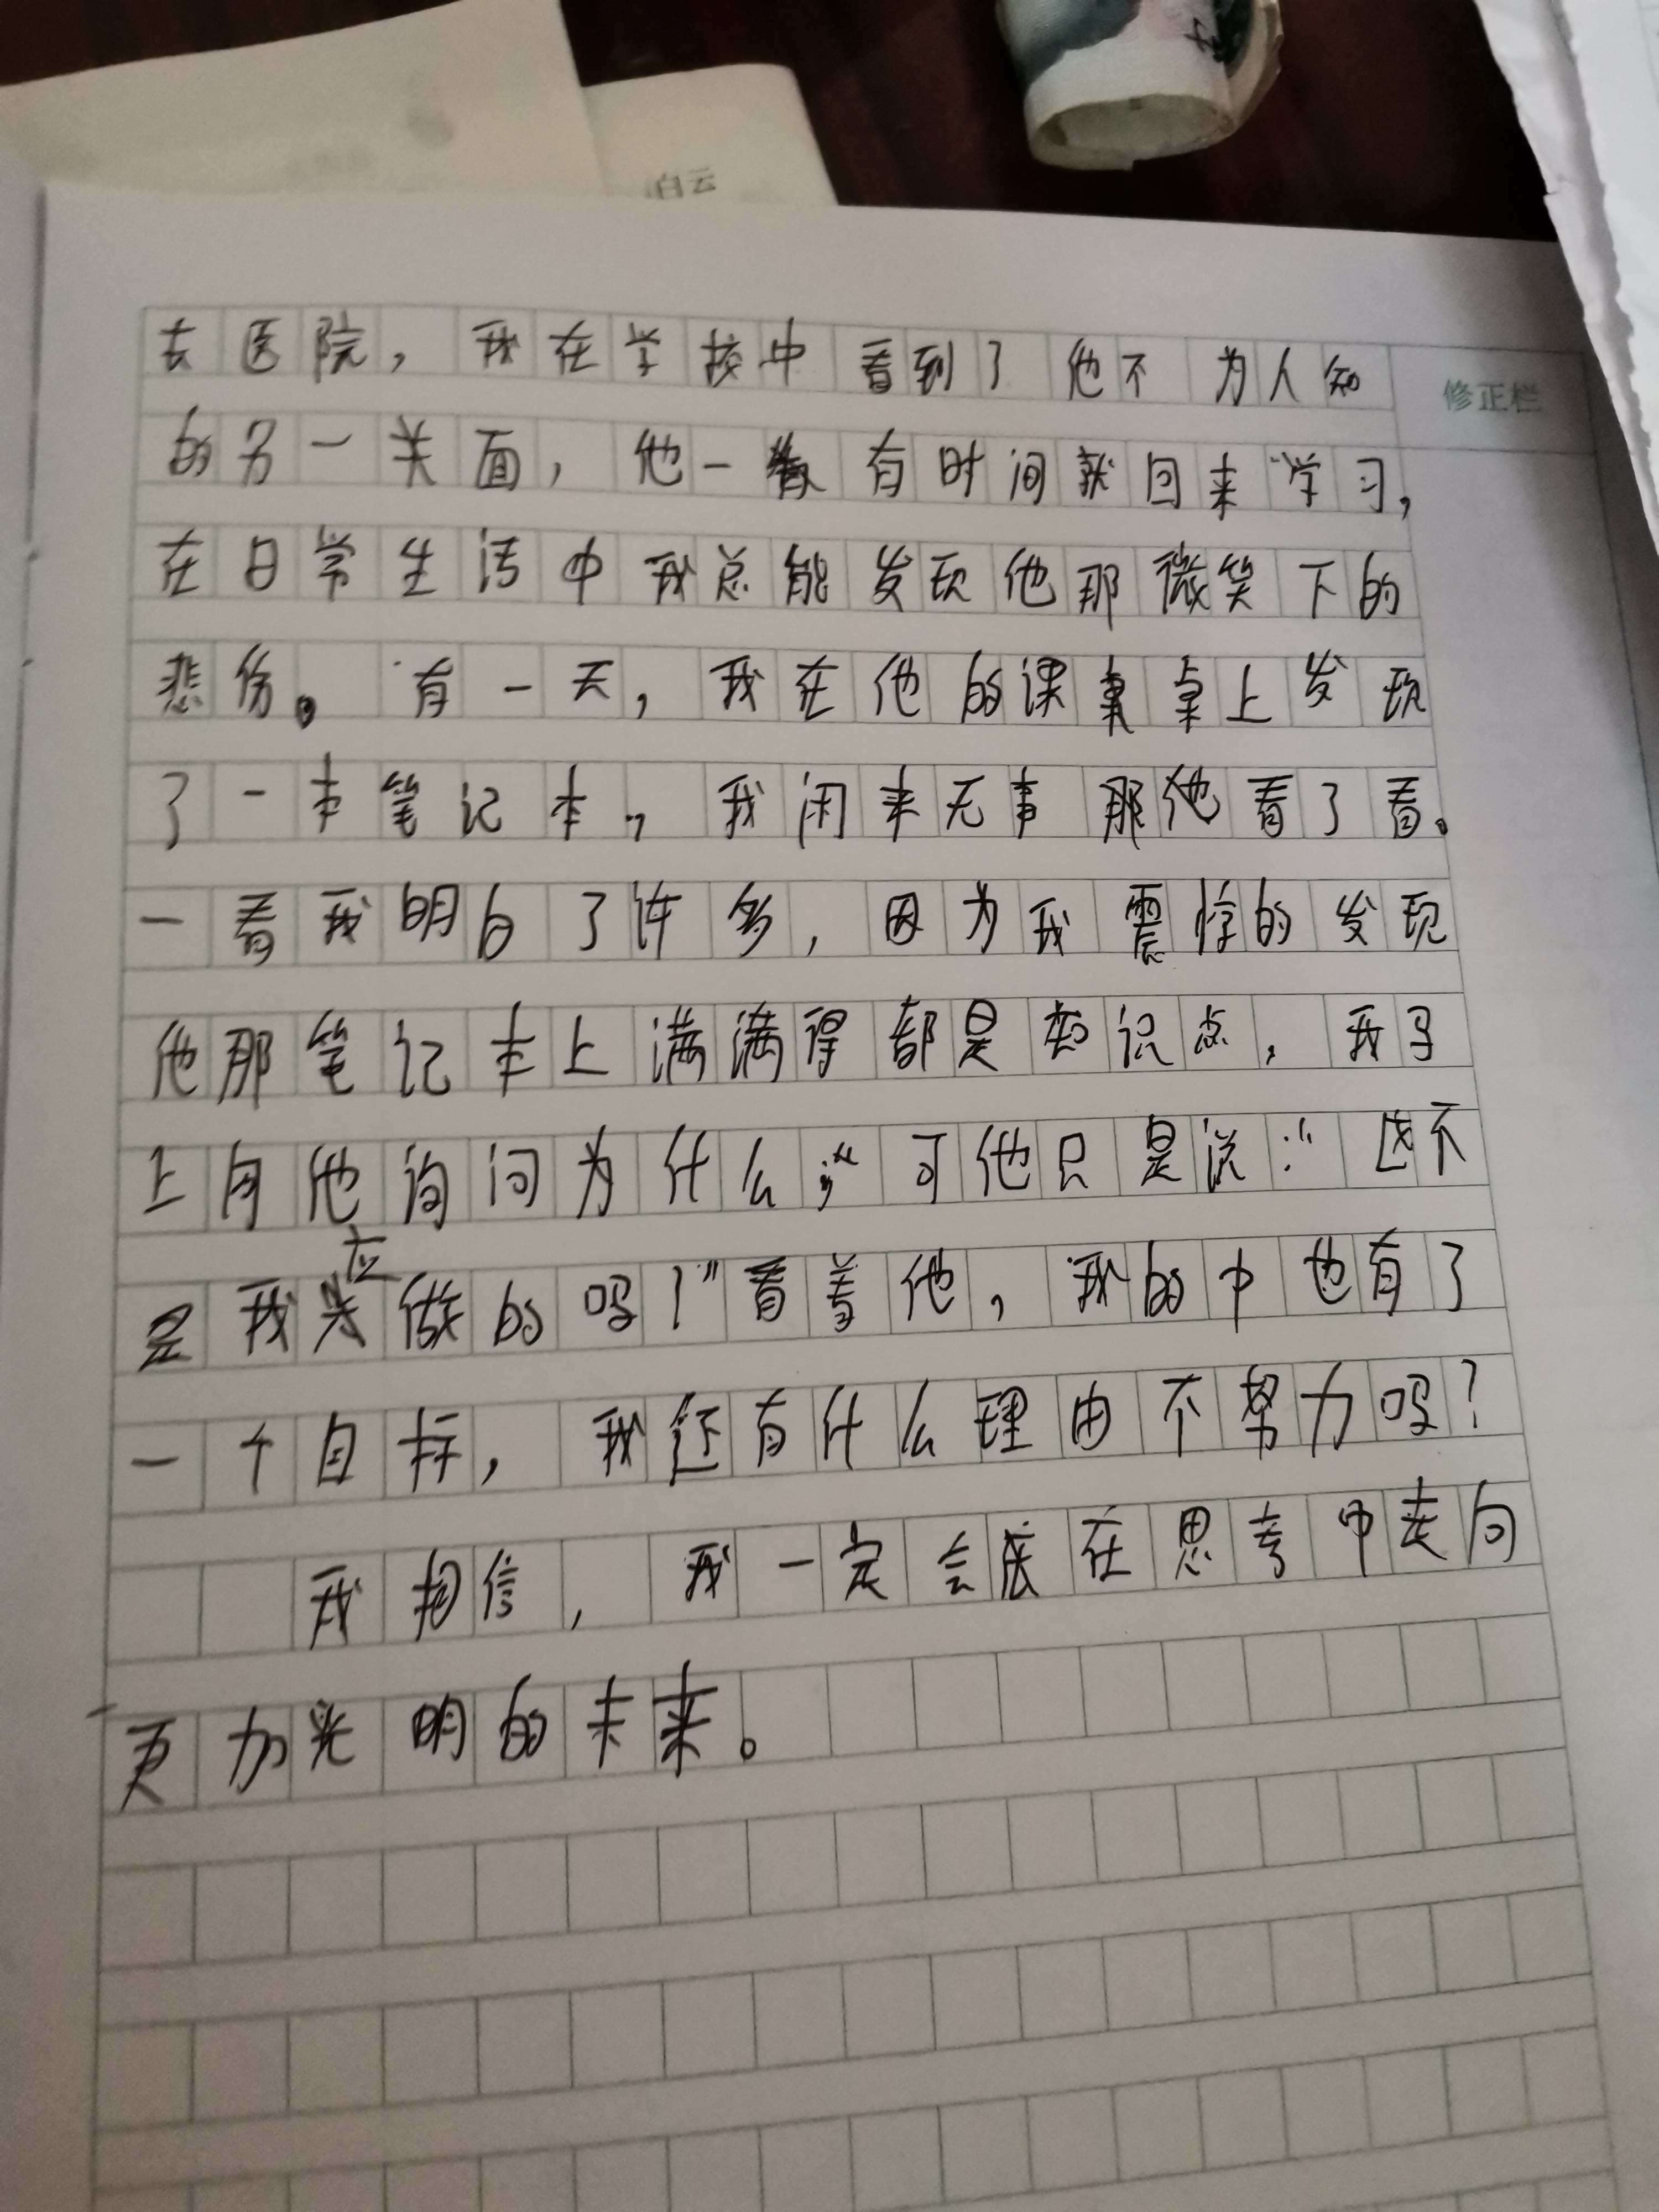 白云
修正栏
去医院，我在学校中看到了他不为人知
的另一关面，他一有时间就回来学习，
在日常生活中我总能发现他那微笑下的
悲伤。有一天，我在他的课桌上发现
了一本笔记本，我闲来无事那他看了看。
一看我明白了许多，因为我震惊的发现
他那笔记本上满满得都是知识点，我马
上向他询问为什么，可他只是说：“这不
是我应做的吗！”看着他，我的中也有了
一个目标，我还有什么理由不努力吗？
我相信，我一定会在思考中走向
更加光明的未来。